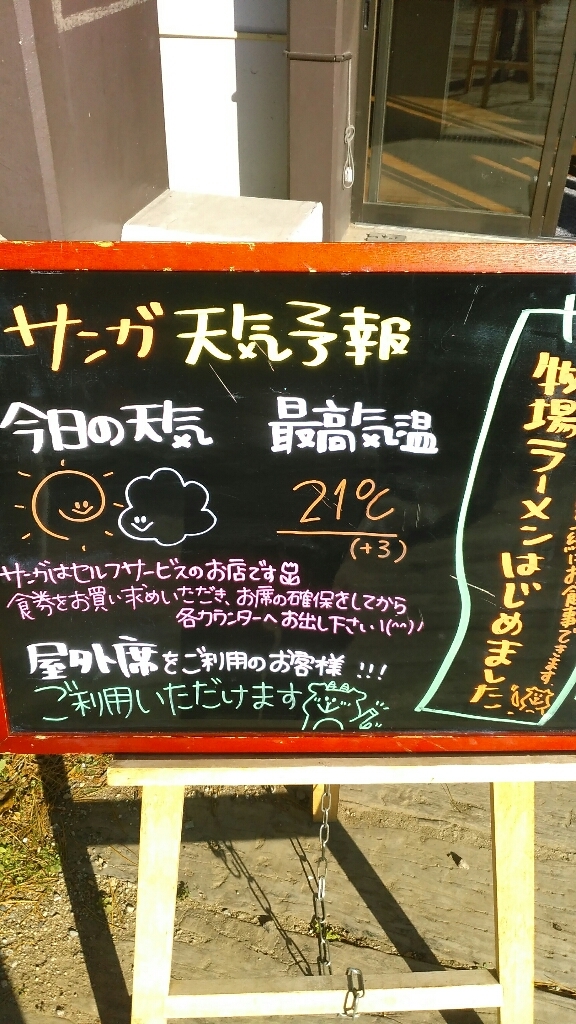 サンガ 天気予報
今日の天気 最高気温
21℃
(+3)
サンガはセルフサービスのお店です
食券をお買い求めいただき、お席の確保をしてから
各カウンターへお出し下さい!(^^)!
屋外席をご利用のお客様 !!!
ご利用いただけます
牧場ラーメンはじめました
お食事できます